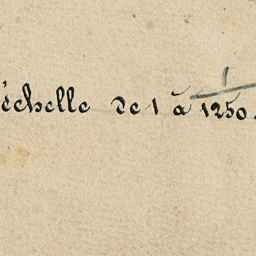 échelle de 1 à 1/1250.